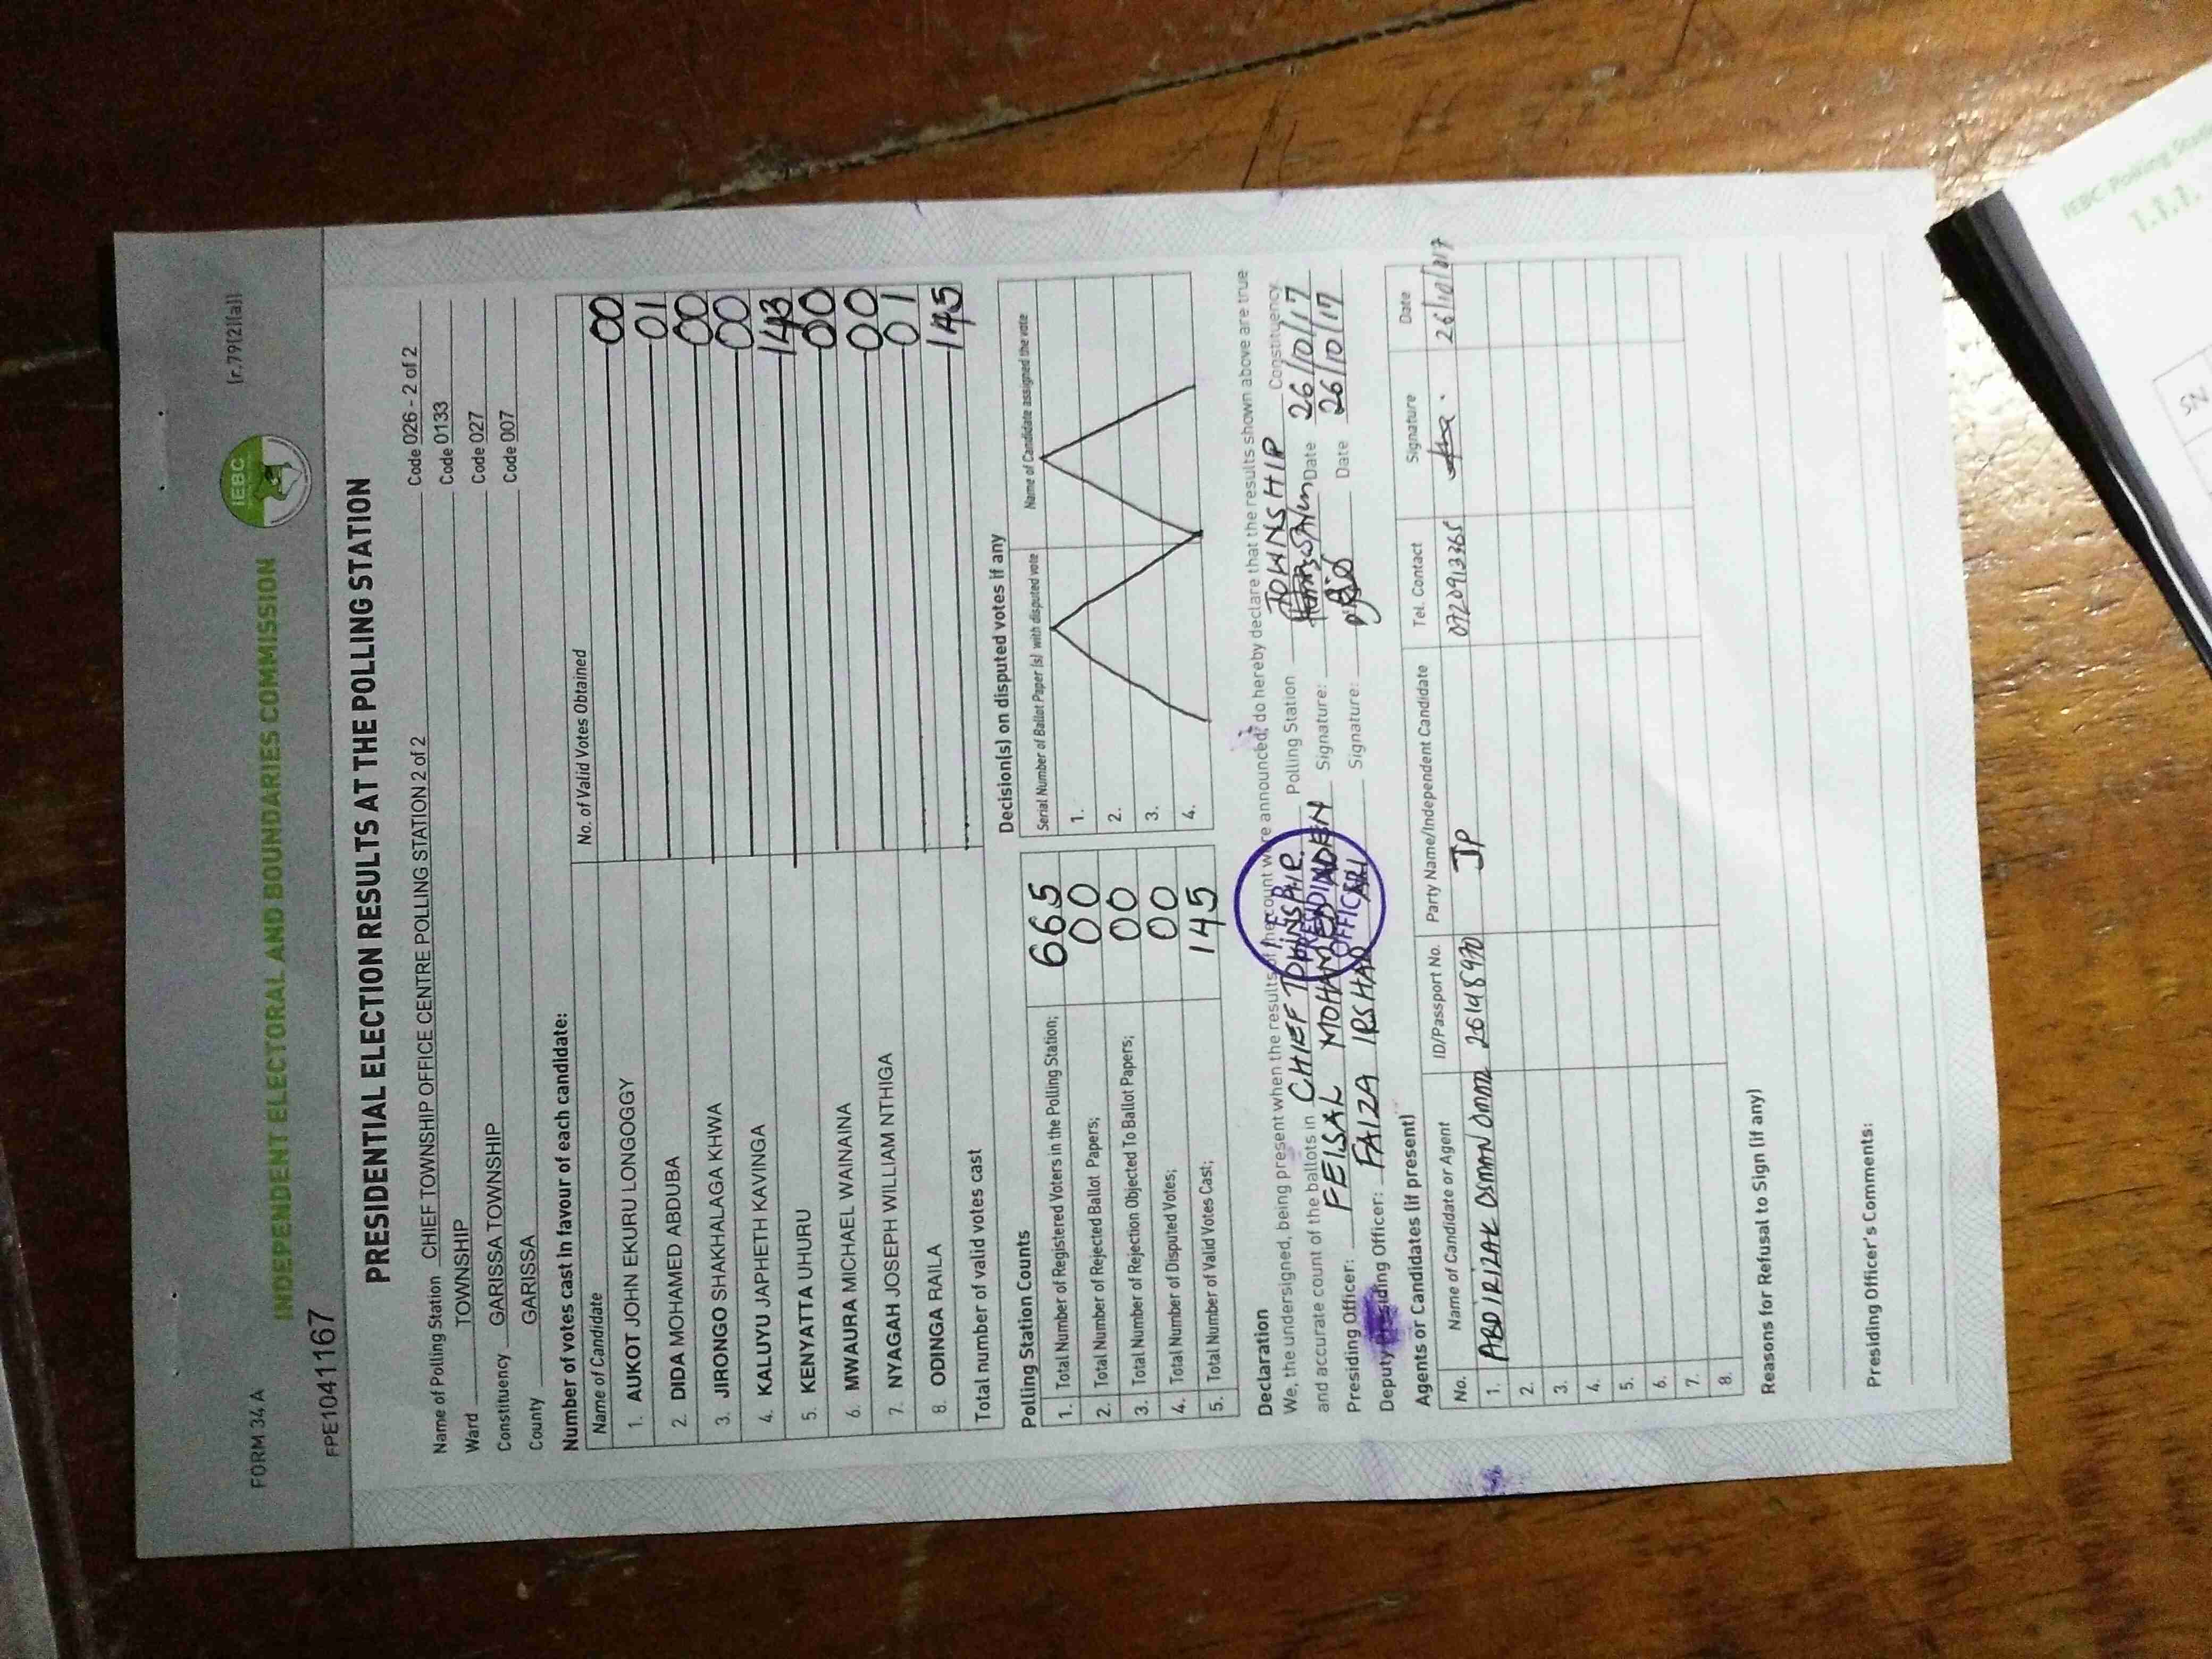 FORM 34 A
(r.79(2)(a))
INDEPENDENT ELECTORAL AND BOUNDARIES COMMISSION
IEBC
FPE1041167
PRESIDENTIAL ELECTION RESULTS AT THE POLLING STATION
Name of Polling Station CHIEF TOWNSHIP OFFICE CENTRE POLLING STATION 2 of 2 Code 026 - 2 of 2
Ward TOWNSHIP Code 0133
Constituency GARISSA TOWNSHIP Code 027
County GARISSA Code 007
Number of votes cast in favour of each candidate:
Name of Candidate No. of Valid Votes Obtained
1. AUKOT JOHN EKURU LONGOGGY 00
2. DIDA MOHAMED ABDUBA 01
3. JIRONGO SHAKHALAGA KHWA 00
4. KALUYU JAPHETH KAVINGA 00
5. KENYATTA UHURU 143
6. MWAURA MICHAEL WAINAINA 00
7. NYAGAH JOSEPH WILLIAM NTHIGA 00
8. ODINGA RAILA 01
Total number of valid votes cast 145
Polling Station Counts
1. Total Number of Registered Voters in the Polling Station; 665
2. Total Number of Rejected Ballot Papers; 00
3. Total Number of Rejection Objected To Ballot Papers; 00
4. Total Number of Disputed Votes; 00
5. Total Number of Valid Votes Cast; 145
Decision(s) on disputed votes if any
Serial Number of Ballot Paper (s) with disputed vote Name of Candidate assigned the vote
1.
2.
3.
4.
Declaration
We, the undersigned, being present when the results of the count were announced, do hereby declare that the results shown above are true
and accurate count of the ballots in CHIEF TOWNSHIP Polling Station TOWNSHIP Constituency
Presiding Officer: FEISAL MOHAMED ADEN Signature: Date 26/10/17
Deputy Presiding Officer: FAIZA IRSHAD ALI Signature: Date 26/10/17
OFFICER
Agents or Candidates (if present)
No. Name of Candidate or Agent ID/Passport No. Party Name/Independent Candidate Tel. Contact Signature Date
1. ABDIRIZAK OSMAN JP 0720913365 26/10/017
2.
3.
4.
5.
6.
7.
8.
Reasons for Refusal to Sign (if any)
Presiding Officer's Comments:
IEBC Polling
1.1.1.
SN